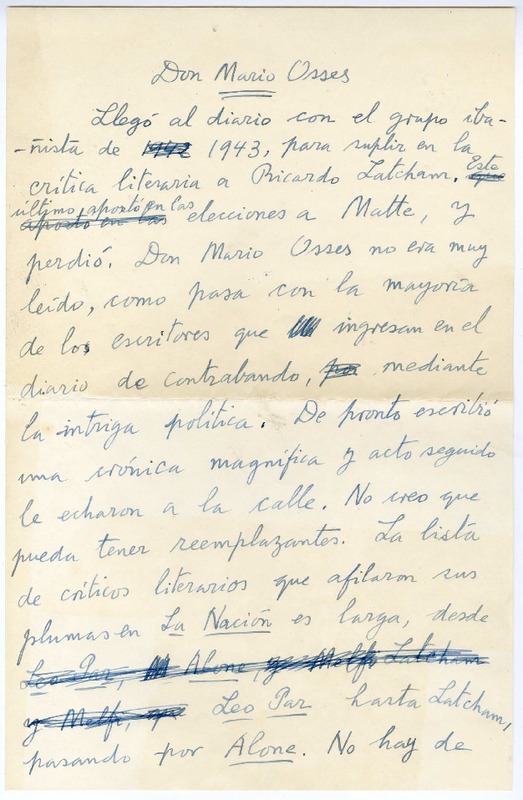 Don Mario Osses
Llegó al diario con el grupo iba-
-ñista de 1942 1943, para suplir en la
crítica literaria a Ricardo Latcham. Este
último, apostó en las elecciones a Matte, y
perdió. Don Mario Osses no era muy
leído, como pasa con la mayoría
de los escritores que ingresan en el
diario de contrabando, por mediante
la intriga política. De pronto escribió
una crónica magnífica y acto seguido
le echaron a la calle. No creo que
pueda tener reemplazantes. La lista
de críticos literarios que afilaron sus
plumas en La Nación es larga, desde
Leo Par, Alone, y Melfi Latcham
y Melfi, que Leo Par hasta Latcham,
pasando por Alone. No hay de